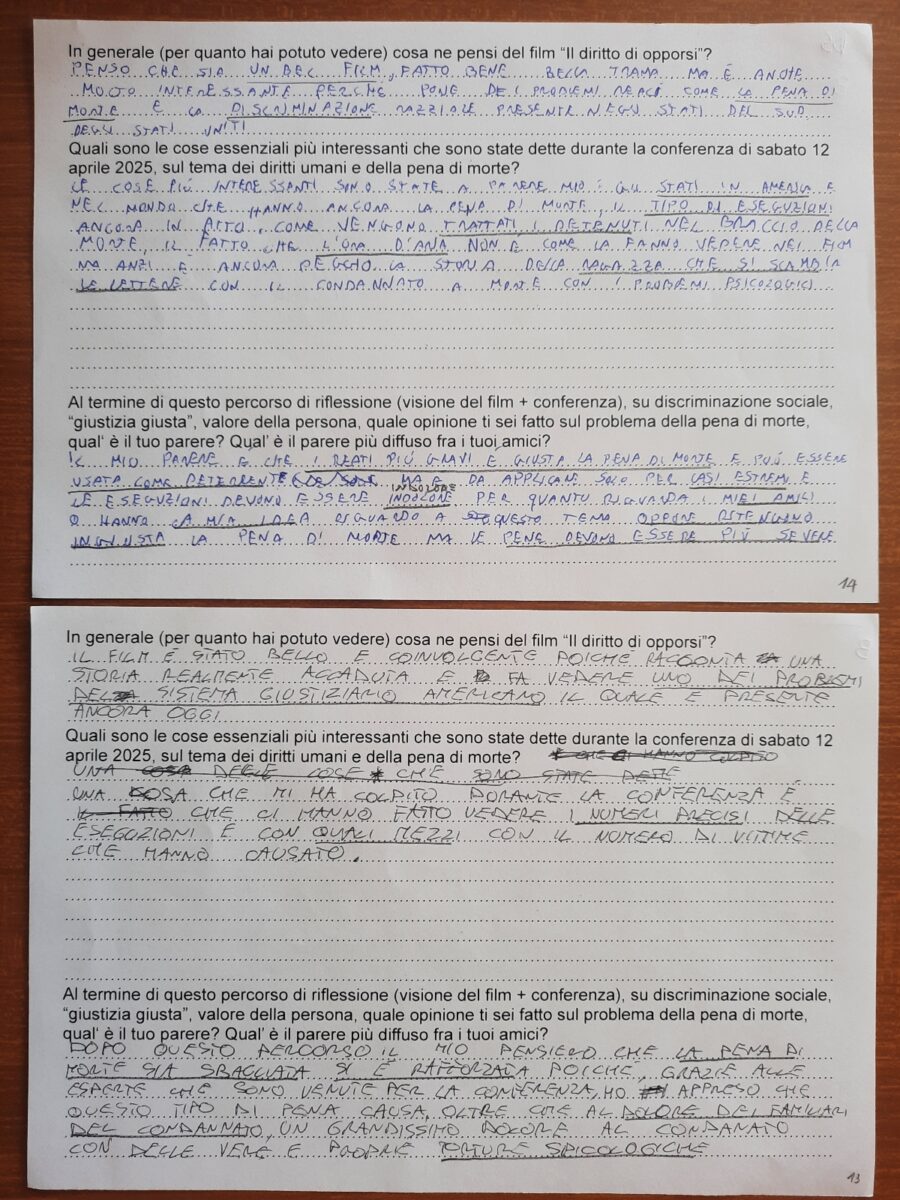 In generale (per quanto hai potuto vedere) cosa ne pensi del film “Il diritto di opporsi”?
PENSO CHE SIA UN BEL FILM, FATTO BENE BELLA TRAMA MA È ANCHE
MOLTO INTERESSANTE PERCHE PONE DEI PROBLEMI REALI COME LA PENA DI
MORTE E LA DISCRIMINAZIONE RAZZIALE PRESENTE NEGLI STATI DEL SUD
DEGLI STATI UNITI
Quali sono le cose essenziali più interessanti che sono state dette durante la conferenza di sabato 12
aprile 2025, sul tema dei diritti umani e della pena di morte?
LE COSE PIÙ INTERESSANTI SONO STATE A PARERE MIO: GLI STATI IN AMERICA E
NEL MONDO CHE HANNO ANCORA LA PENA DI MORTE, IL TIPO DI ESEGUZIONI
ANCORA IN ATTO, COME VENGONO TRATTATI I DETENUTI NEL BRACCIO DELLA
MORTE IL FATTO CHE L'ORA D'ARIA NON È COME LA FANNO VEDERE NEI FILM
MA ANZI È ANCORA PEGGIO LA STORIA DELLA RAGAZZA CHE SI SCAMBIA
LE LETTERE CON IL CONDANNATO A MORTE CON I PROBLEMI PSICOLOGICI
Al termine di questo percorso di riflessione (visione del film + conferenza), su discriminazione sociale,
“giustizia giusta”, valore della persona, quale opinione ti sei fatto sul problema della pena di morte,
qual‘ è il tuo parere? Qual’ è il parere più diffuso fra i tuoi amici?
IL MIO PARERE E CHE I REATI PIÙ GRAVI E GIUSTA LA PENA DI MORTE E PUÓ ESSERE
USATA COME DETERRENTE MA E DA APPLICARE SOLO PER CASI ESTREMI E
LE ESEGUZIONI DEVONO ESSERE INDOLORE INDOLORE PER QUANTO RIGUARDA I MIEI AMICI
O HANNO LA MIA IDEA RIGUARDO A QUESTO TEMA OPPURE RITENGONO
INGIUSTA LA PENA DI MORTE MA LE PENE DEVONO ESSERE PIÙ SEVERE
14
In generale (per quanto hai potuto vedere) cosa ne pensi del film “Il diritto di opporsi”?
IL FILM È STATO BELLO E COINVOLGENTE POICHÈ RACCONTA UNA
STORIA REALMENTE ACCADUTA E FA VEDERE UNO DEI PROBLEMI
DEL SISTEMA GIUSTIZIARIO AMERICANO IL QUALE È PRESENTE
ANCORA OGGI
Quali sono le cose essenziali più interessanti che sono state dette durante la conferenza di sabato 12
aprile 2025, sul tema dei diritti umani e della pena di morte? CHE CI HANNO COLPITO
UNA COSA DELLE COSE CHE SONO STATE DETTE
UNA COSA CHE MI HA COLPITO DURANTE LA CONFERENZA È
IL FATTO CHE CI HANNO FATTO VEDERE I NUMERI PRECISI DELLE
ESEGUZIONI E CON QUALI MEZZI CON IL NUMERO DI VITTIME
CHE HANNO CAUSATO.
Al termine di questo percorso di riflessione (visione del film + conferenza), su discriminazione sociale,
“giustizia giusta”, valore della persona, quale opinione ti sei fatto sul problema della pena di morte,
qual‘ è il tuo parere? Qual’ è il parere più diffuso fra i tuoi amici?
DOPO QUESTO PERCORSO IL MIO PENSIERO CHE LA PENA DI
MORTE SIA SBAGLIATA SI È RAFFORZATA POICHÈ, GRAZIE ALLE
ESPERTE CHE SONO VENUTE PER LA CONFERENZA, HO APPRESO CHE
QUESTO TIPO DI PENA CAUSA, OLTRE CHE AL DOLORE DEI FAMILIARI
DEL CONDANNATO, UN GRANDISSIMO DOLORE AL CONDANATO
CON DELLE VERE E PROPRIE TORTURE SPICOLOGICHE
13